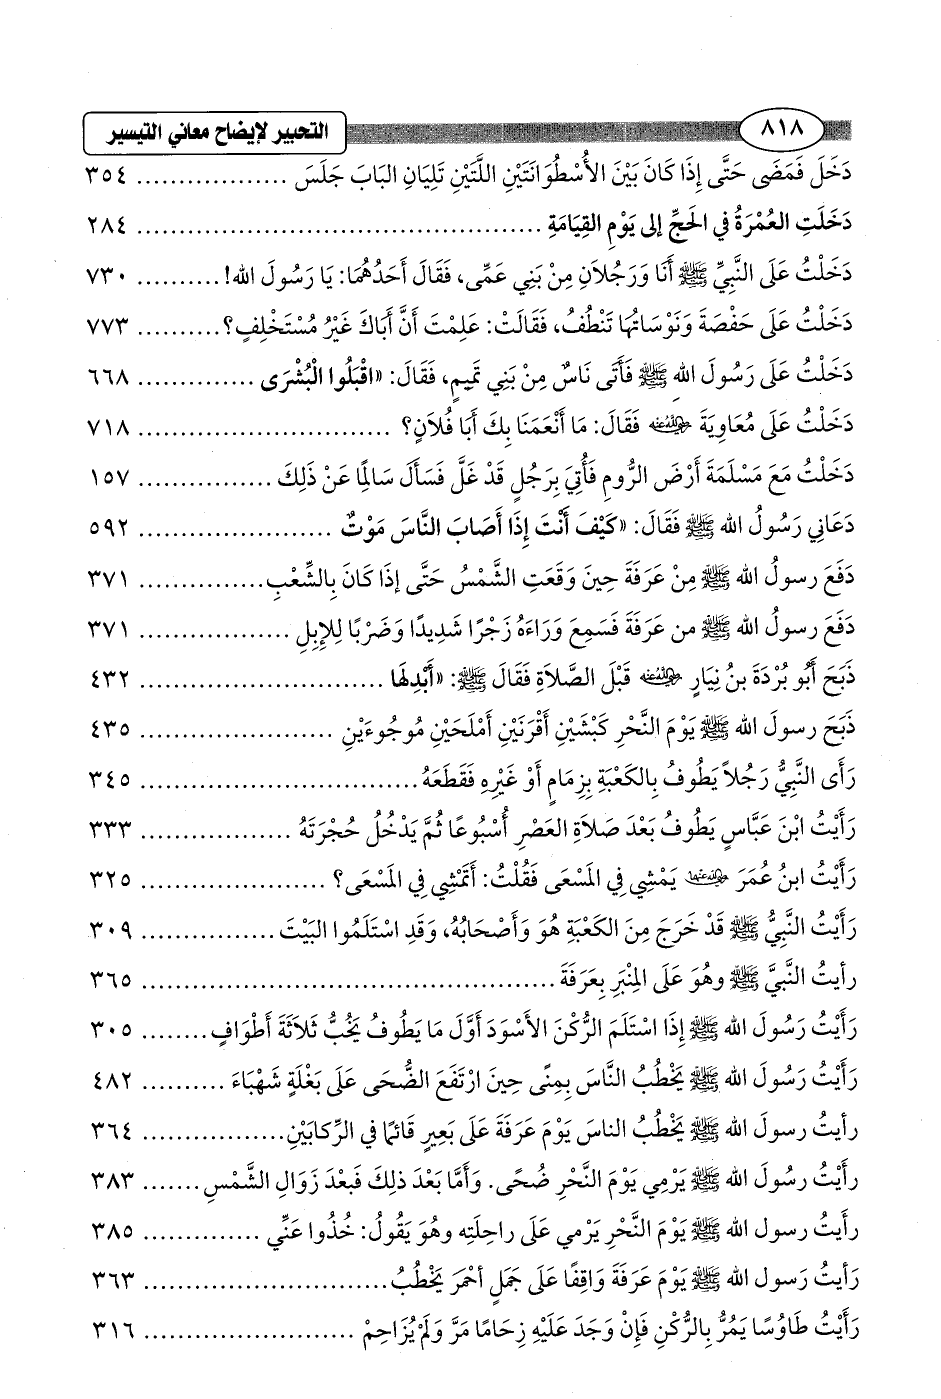 ٨١٨ التحبير لإيضاح معاني التيسير
دَخَلَ فَمَضَى حَتَّى إِذَا كَانَ بَيْنَ الأُسْطُوَانَتَيْنِ اللَّتَيْنِ تَلِيَانِ البَابَ جَلَسَ .................. ٣٥٤
دَخَلَتِ العُمْرَةُ في الحَجِّ إلى يَوْمِ القِيَامَةِ ................................................ ٢٨٤
دَخَلْتُ عَلَى النَّبِيِّ ﷺ أَنَا وَرَجُلاَنِ مِنْ بَنِي عَمِّى، فَقَالَ أَحَدُهُمَا: يَا رَسُولَ الله! .......... ٧٣٠
دَخَلْتُ عَلَى حَفْصَةَ وَنَوْسَاتُهَا تَنْطُفُ، فَقَالَتْ: عَلِمْتَ أَنَّ أَبَاكَ غَيْرُ مُسْتَخْلِفٍ؟ .......... ٧٧٣
دَخَلْتُ عَلَى رَسُولَ الله ﷺ فَأَتَى نَاسٌ مِنْ بَنِي تَمِيمٍ، فَقَالَ: «اقْبَلُوا الْبُشْرَى .............. ٦٦٨
دَخَلْتُ عَلَى مُعَاوِيَةَ رضي الله عنه فَقَالَ: مَا أَنْعَمَنَا بِكَ أَبَا فُلاَنٍ؟ .............................. ٧١٨
دَخَلْتُ مَعَ مَسْلَمَةَ أَرْضَ الرُّومِ فَأُتِيَ بِرَجُلٍ قَدْ غَلَّ فَسَأَلَ سَالِمًا عَنْ ذَلِكَ ................ ١٥٧
دَعَانِي رَسُولُ الله ﷺ فَقَالَ: «كَيْفَ أَنْتَ إِذَا أَصَابَ النَّاسَ مَوْتٌ ....................... ٥٩٢
دَفَعَ رسولُ الله ﷺ مِنْ عَرَفَةَ حِينَ وَقَعَتِ الشَّمْسُ حَتَّى إِذَا كَانَ بِالشِّعْبِ ............... ٣٧١
دَفَعَ رسولُ الله ﷺ من عَرَفَةَ فَسَمِعَ وَرَاءَهُ زَجْرًا شَدِيدًا وَضَرْبًا لِلإِبِلِ .................. ٣٧١
ذَبَحَ أَبُو بُرْدَةَ بنُ نِيَارٍ رضي الله عنه قَبْلَ الصَّلاَةِ فَقَالَ ﷺ: «أَبْدِلهَا ............................. ٤٣٢
ذَبَحَ رسولُ الله ﷺ يَوْمَ النَّحْرِ كَبْشَيْنِ أَقْرَنَيْنِ أَمْلَحَيْنِ مُوجُوءَيْنِ ....................... ٤٣٥
رَأَى النَّبِيُّ رَجُلاً يَطُوفُ بِالكَعْبَةِ بِزِمَامٍ أَوْ غَيْرِهِ فَقَطَعَهُ ................................. ٣٤٥
رَأَيْتُ ابْنَ عَبَّاسٍ يَطُوفُ بَعْدَ صَلاَةِ العَصْرِ أُسْبُوعًا ثُمَّ يَدْخُلُ حُجْرَتَهُ .................. ٣٣٣
رَأَيْتُ ابنُ عُمَرَ رضي الله عنهما يَمْشِي فِي المَسْعَى فَقُلْتُ: أَتَمْشِي فِي المَسْعَى؟ ...................... ٣٢٥
رَأَيْتُ النَّبِيُّ ﷺ قَدْ خَرَجَ مِنَ الكَعْبَةِ هُوَ وَأَصْحَابُهُ، وَقَدِ اسْتَلَمُوا البَيْتَ ................ ٣٠٩
رأيتُ النَّبيَّ ﷺ وهُوَ عَلَى المِنْبَرِ بِعَرَفَةَ .................................................. ٣٦٥
رَأَيْتُ رَسُولَ الله ﷺ إِذَا اسْتَلَمَ الرُّكْنَ الأَسْوَدَ أَوَّلَ مَا يَطُوفُ يَخُبُّ ثَلاَثَةَ أَطْوَافٍ ........ ٣٠٥
رَأَيْتُ رَسُولَ الله ﷺ يَخْطُبُ النَّاسَ بِمِنًى حِينَ ارْتَفَعَ الضُّحَى عَلَى بَغْلَةٍ شَهْبَاءَ .......... ٤٨٢
رأيتُ رسولَ الله ﷺ يَخْطُبُ الناسَ يَوْمَ عَرَفَةَ عَلَى بَعِيرٍ قَائمًا في الرِّكابَيْنِ ................. ٣٦٤
رأَيْتُ رسُولَ الله ﷺ يَرْمِي يَوْمَ النَّحْرِ ضُحًى. وَأَمَّا بَعْدَ ذلِكَ فَبعْدَ زَوَالِ الشَّمْسِ ....... ٣٨٣
رأَيتُ رسولَ الله ﷺ يَوْمَ النَّحْرِ يَرْمي عَلَى راحِلَتِه وهُوَ يَقُولُ: خُذُوا عَنِّي .............. ٣٨٥
رَأيتُ رَسول الله ﷺ يَوْمَ عَرَفَةَ وَاقِفًا عَلَى جَمَلٍ أحْمَرَ يَخْطُبُ ............................. ٣٦٣
رَأَيْتُ طَاوُسًا يَمُرُّ بِالرُّكْنِ فَإِنْ وَجَدَ عَلَيْهِ زِحَامًا مَرَّ وَلَمْ يُزَاحِمْ ......................... ٣١٦